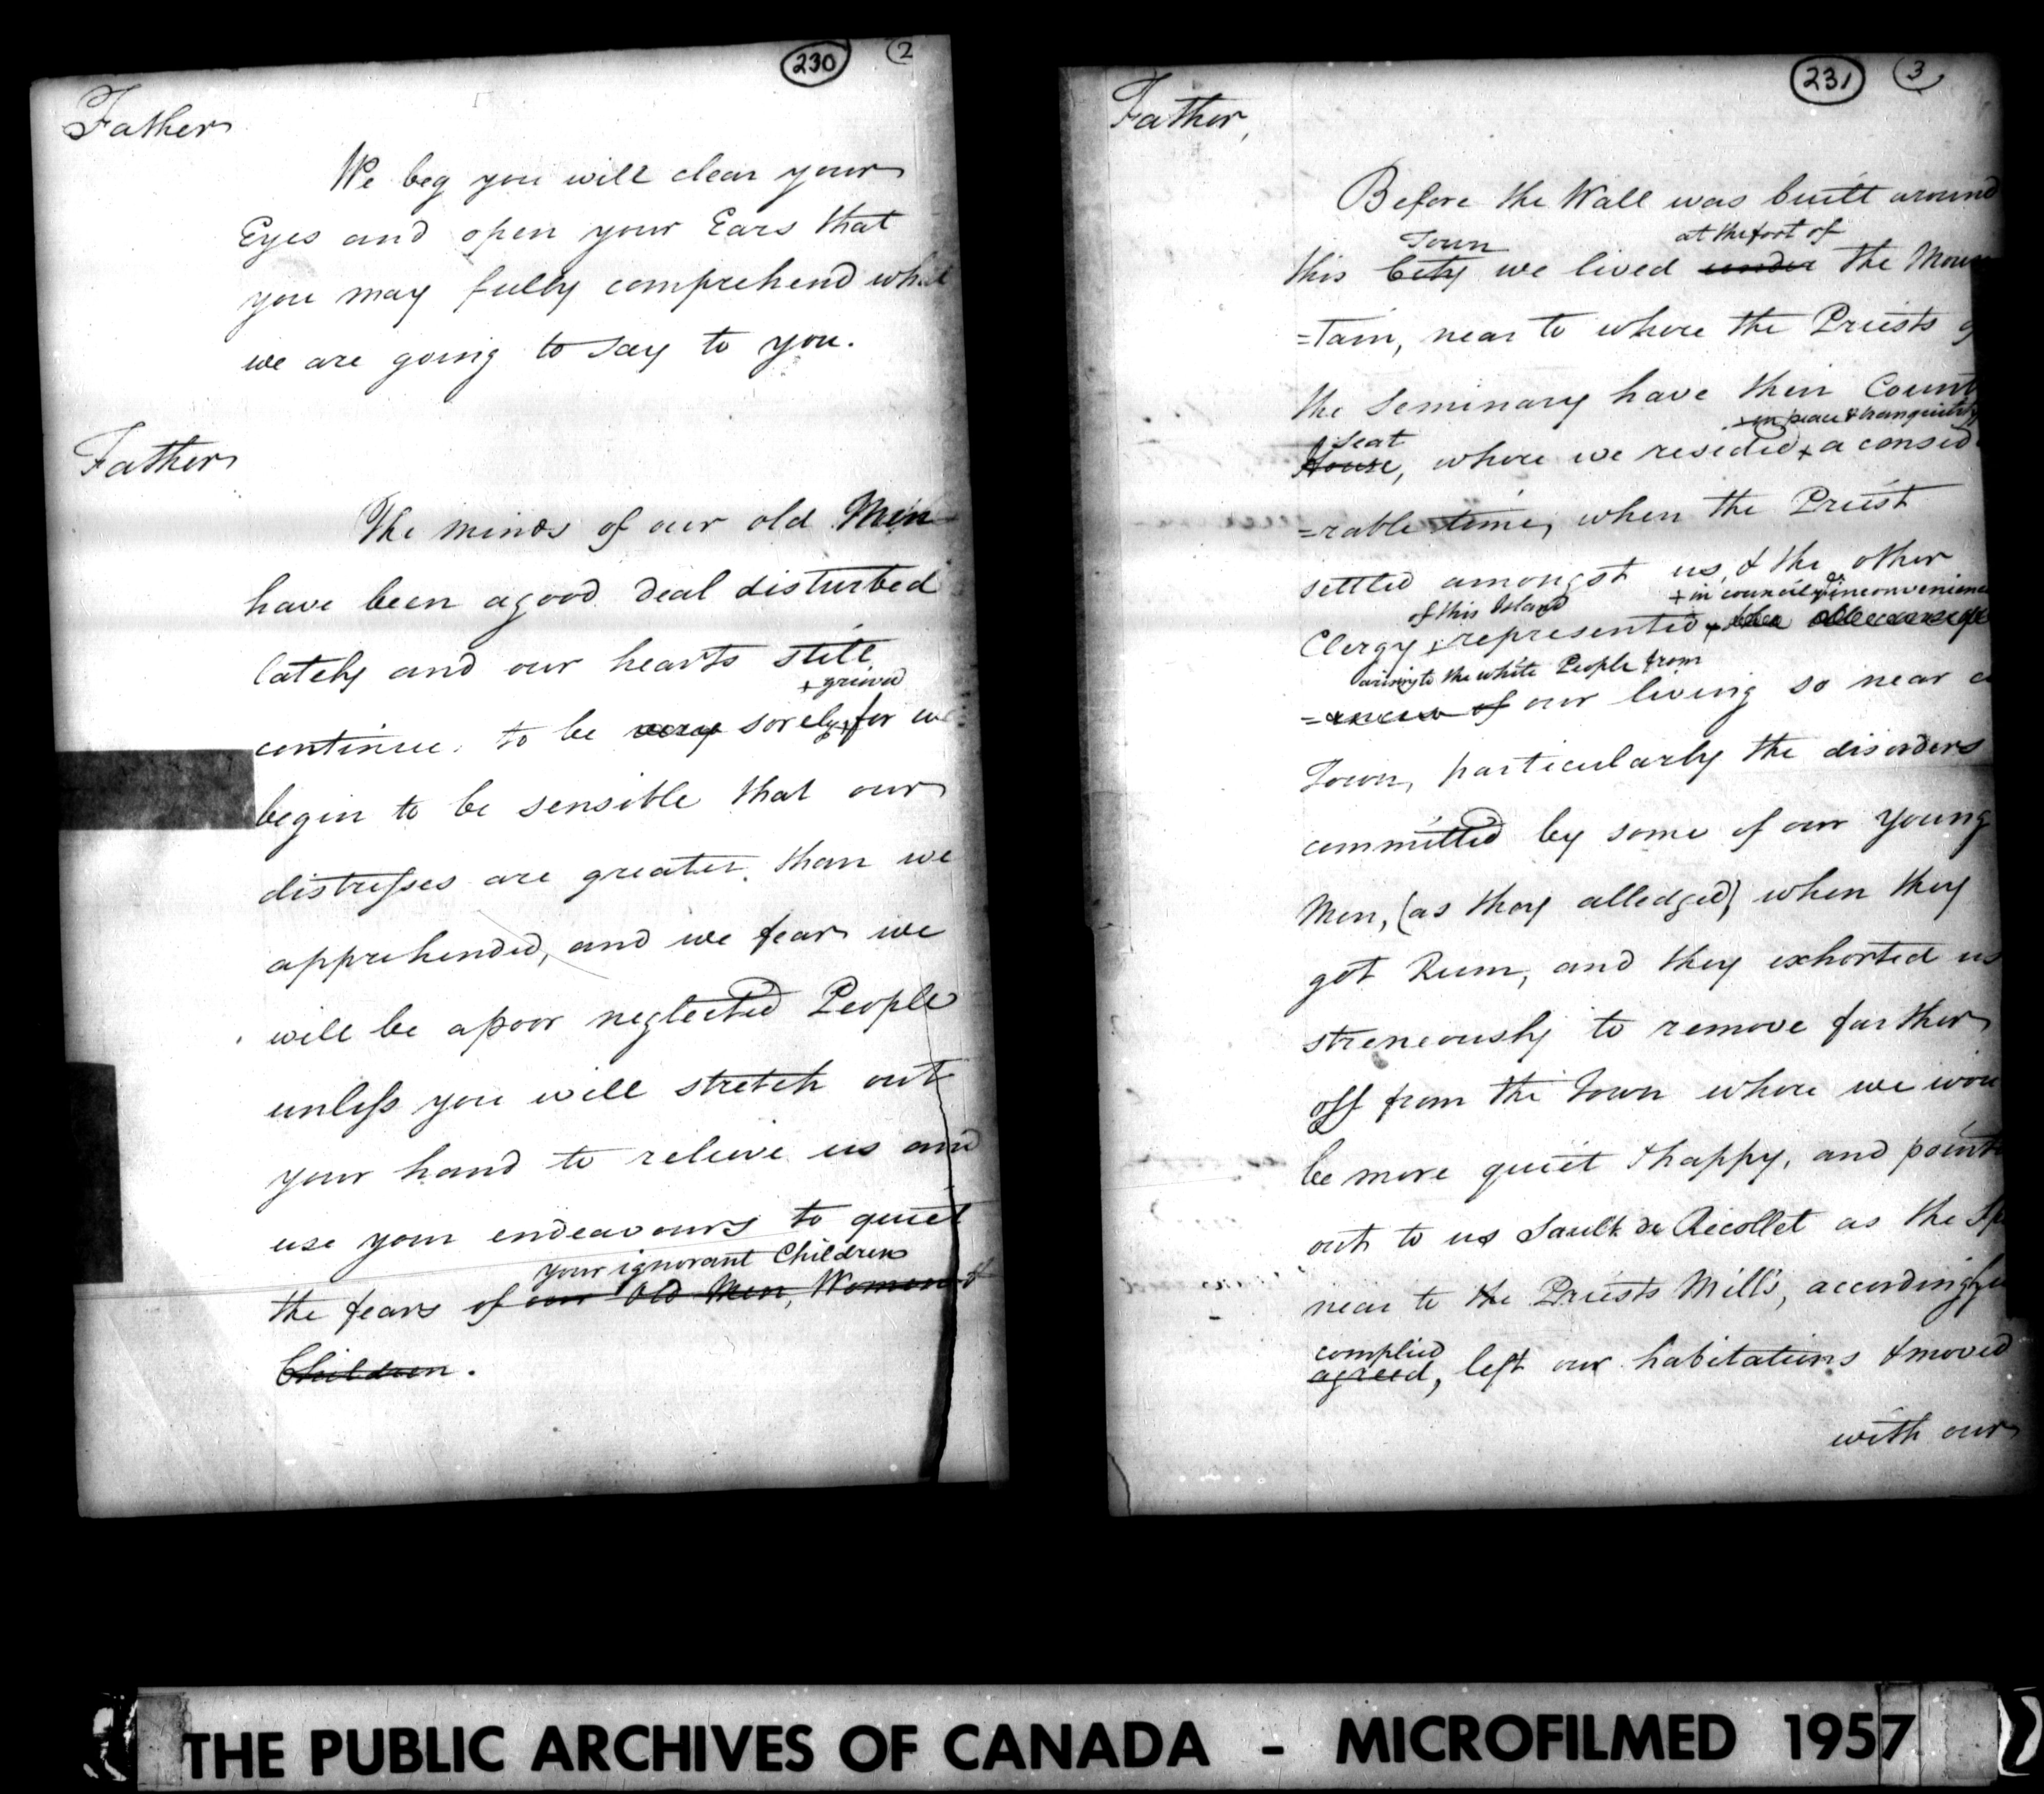 230 2
Father
We beg you will clear your
Eyes and open your Ears that
you may fully comprehend what
we are going to say to you.
Father
The minds of our old Men
have been a good deal disturbed
lately and our hearts still
+ grieved
continue to be very sorely + for we
begin to be sensible that our
distresses are greater than we
apprehended, and we fear we
will be a poor neglected People
unless you will stretch out
your hand to relieve us and
use your endeavours to quiet
your ignorant Children
the fears of our Old Men, Women &
Children.
231 3
Father,
Before the Wall was built around
Town at the foot of
this City we lived under the Moun
=tain, near to where the Priests of
the Seminary have their Count
+ in peace & tranquility
Seat
House, where we resided + a consid
=rable time, when the Priest
settled amongst us, & the other
of this Island + in council the inconvenience
Clergy + represented + the
arising to the white People from
of our living so near a
Town, particularly the disorders
committed by some of our Young
Men, (as they alledged) when they
got Rum, and they exhorted us
streneously to remove farther
off from the Town where we wou
be more quiet & happy, and point
out to us Sault de Recollet as the Sp
near to the Priests Mills, accordingly
complied
agreed, left our habitations & moved
with our
THE PUBLIC ARCHIVES OF CANADA - MICROFILMED 1957